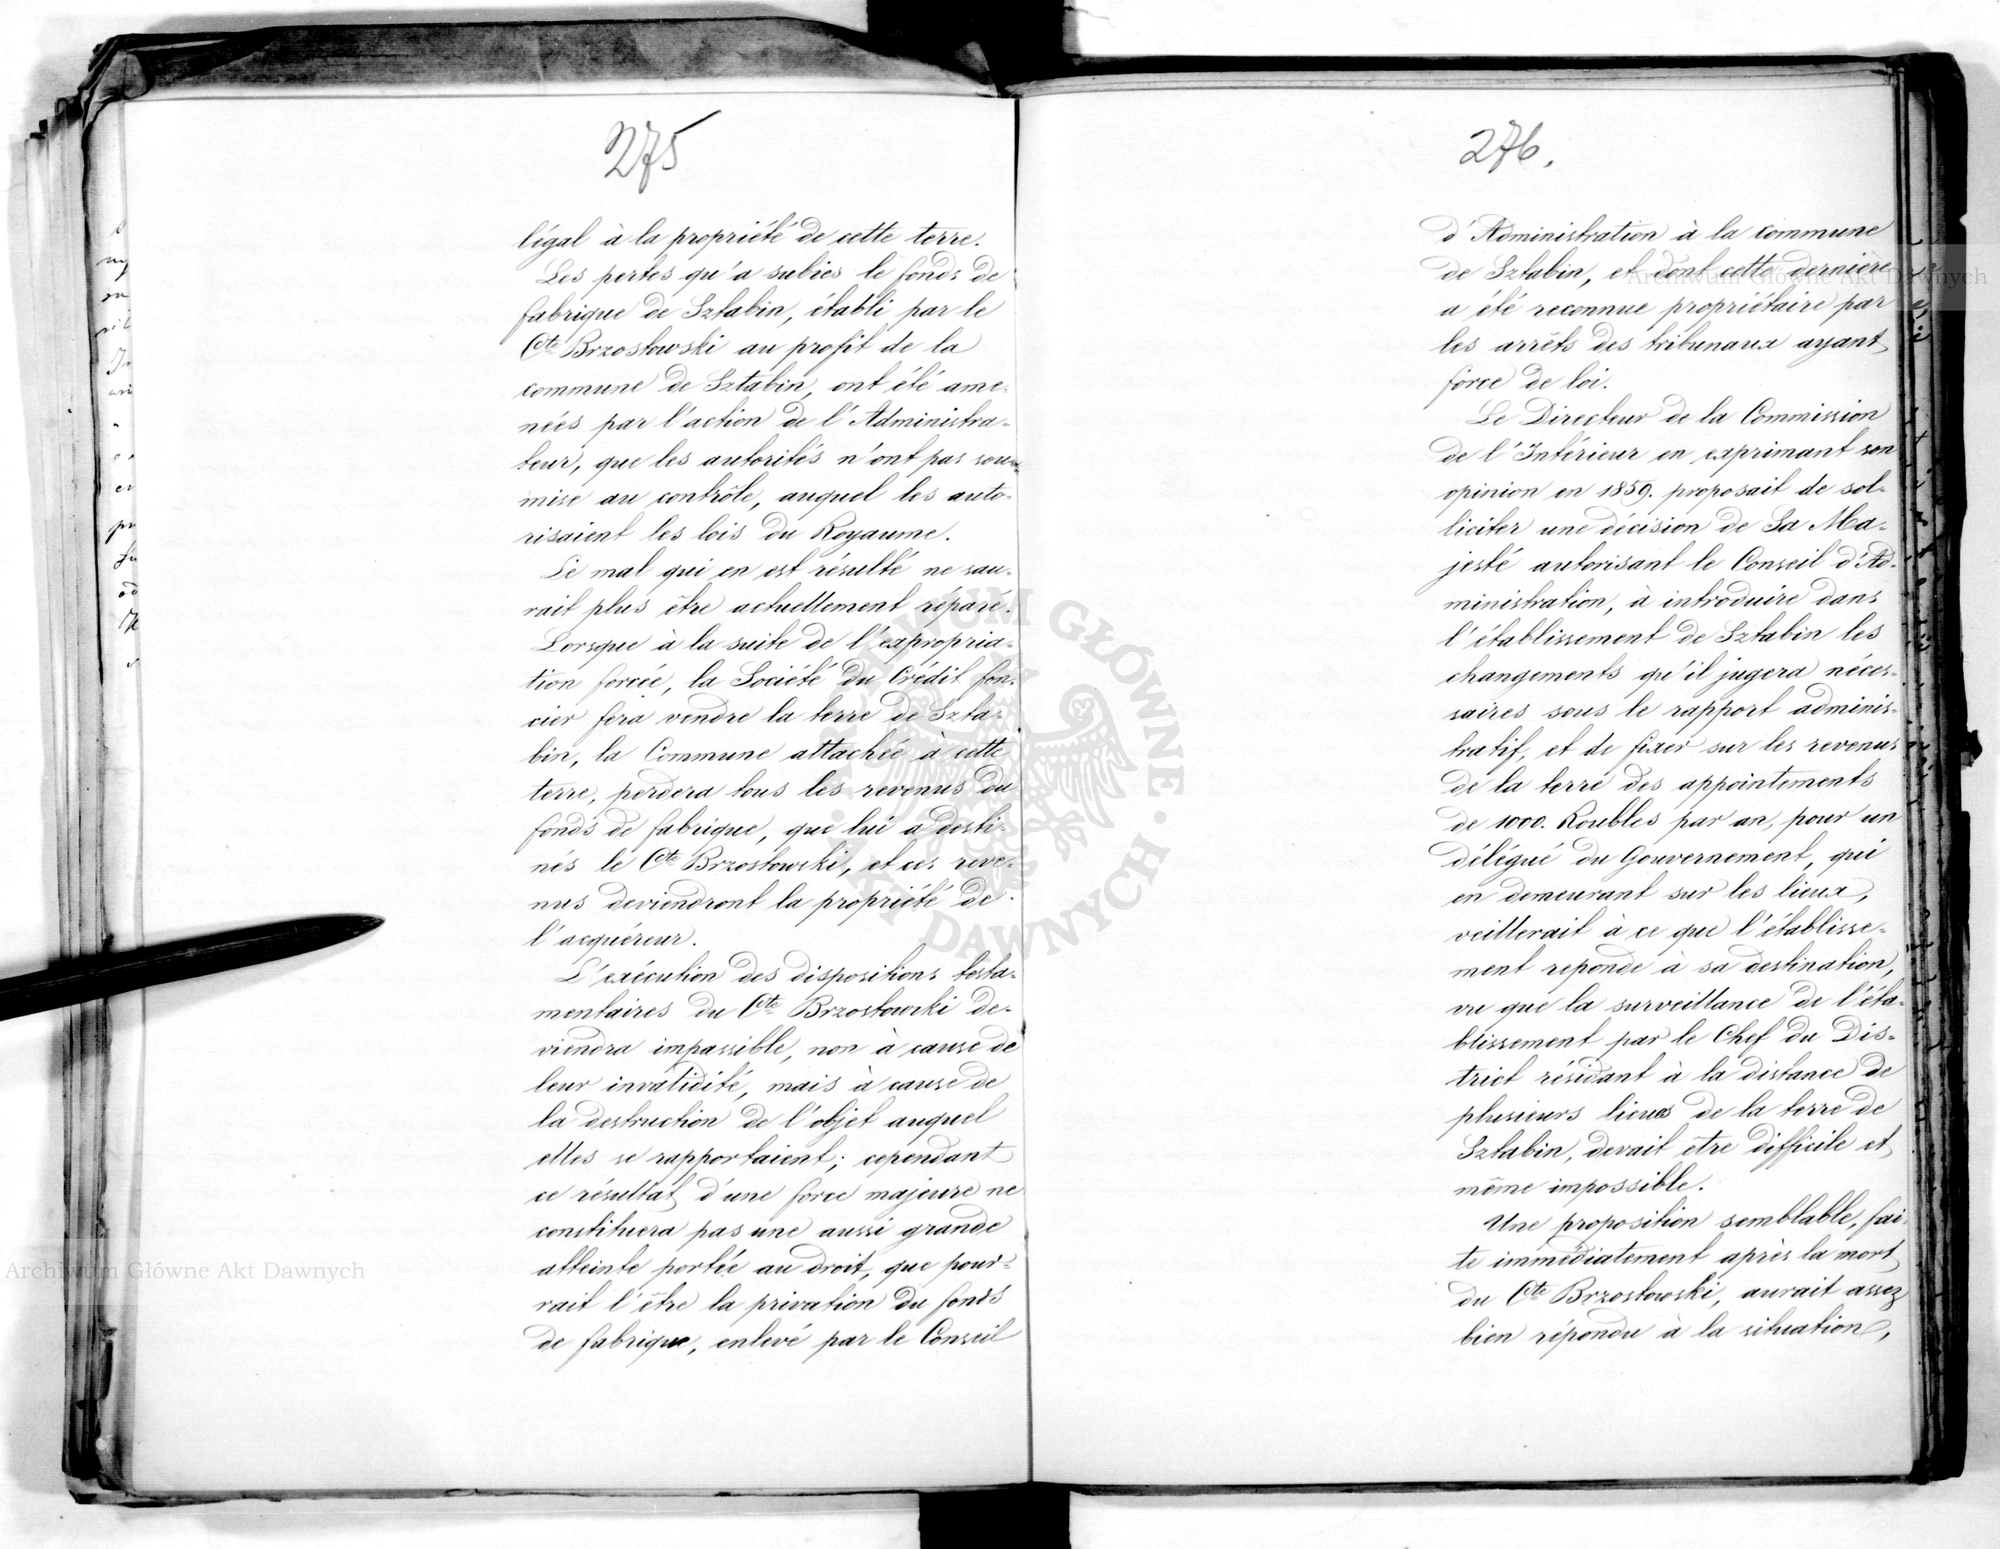 275
légal à la propriété de cette terre.
Les pertes qu'a subies le fonds de
fabrique de Sztabin, établi par le
Cte Brzostowski au profit de la
commune de Sztabin, ont été ame-
nées par l'action de l'Administra-
teur, que les autorités n'ont pas sou-
mise au contrôle, auquel les auto-
risaient les lois du Royaume.
Le mal qui en est résulté ne sau-
rait plus être actuellement réparé.
Lorsque à la suite de l'expropria-
tion forcée, la Société du Crédit fon-
cier fera vendre la terre de Szta-
bin, la Commune attachée à cette
terre, perdera tous les revenus du
fonds de fabrique, que lui a desti-
nés le Cte Brzostowski, et ces reve-
nus deviendront la propriété de
l'acquéreur.
L'exécution des dispositions testa-
mentaires du Cte Brzostowski de-
viendra impossible, non à cause de
leur invalidité, mais à cause de
la destruction de l'objet auquel
elles se rapportaient; cependant
ce résultat d'une force majeure ne
constituera pas une aussi grande
atteinte portée au droit, que pour-
rait l'être la privation du fonds
de fabrique, enlevé par le Conseil
276.
d'Administration à la commune
de Sztabin, et dont cette dernière
a été reconnue propriétaire par
les arrêts des tribunaux ayant
force de loi.
Le Directeur de la Commission
de l'Intérieur en exprimant son
opinion en 1859. proposait de sol-
liciter une décision de Sa Ma-
jesté autorisant le Conseil d'Ad-
ministration, à introduire dans
l'établissement de Sztabin les
changements qu'il jugera néces-
saires sous le rapport adminis-
tratif, et de fixer sur les revenus
de la terre des appointements
de 1000. Roubles par an, pour un
délégué du Gouvernement, qui
en demeurant sur les lieux,
veillerait à ce que l'établisse-
ment reponde à sa destination,
vu que la surveillance de l'éta-
blissement par le Chef du Dis-
trict résidant à la distance de
plusieurs lieues de la terre de
Sztabin, devait etre difficile et
même impossible.
Une proposition semblable, fai-
te immédiatement après la mort
du Cte Brzostowski, aurait assez
bien répondu à la situation,
Archiwum Główne Akt Dawnych
Archiwum Główne Akt Dawnych
ARCHIWUM GŁÓWNE AKT DAWNYCH